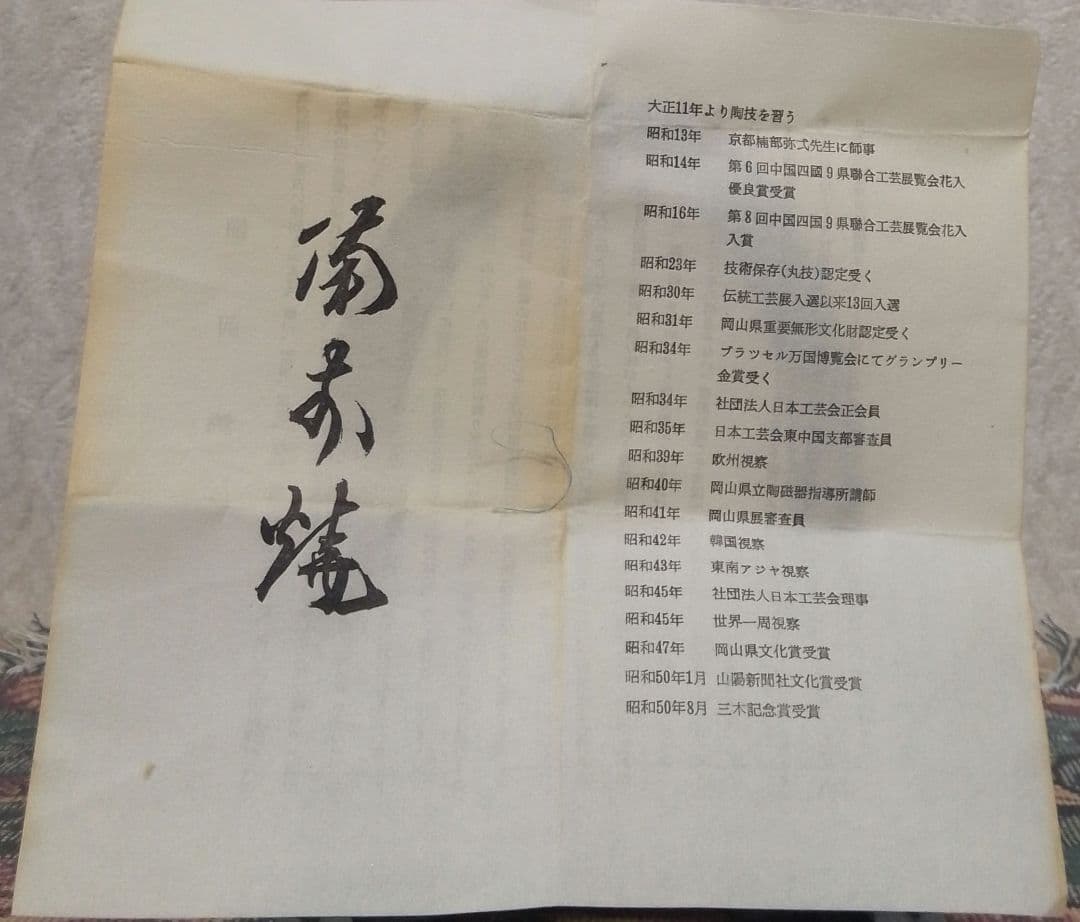 備前焼
大正11年より陶技を習う
昭和13年 京都楠部弥弌先生に師事
昭和14年 第6回中国四國9県聯合工芸展覧会花入
優良賞受賞
昭和16年 第8回中国四国9県聯合工芸展覧会花入
入賞
昭和23年 技術保存(丸技)認定受く
昭和30年 伝統工芸展入選以来13回入選
昭和31年 岡山県重要無形文化財認定受く
昭和34年 ブラツセル万国博覧会にてグランプリー
金賞受く
昭和34年 社団法人日本工芸会正会員
昭和35年 日本工芸会東中国支部審査員
昭和39年 欧州視察
昭和40年 岡山県立陶磁器指導所講師
昭和41年 岡山県展審査員
昭和42年 韓国視察
昭和43年 東南アジヤ視察
昭和45年 社団法人日本工芸会理事
昭和45年 世界一周視察
昭和47年 岡山県文化賞受賞
昭和50年1月 山陽新聞社文化賞受賞
昭和50年8月 三木記念賞受賞